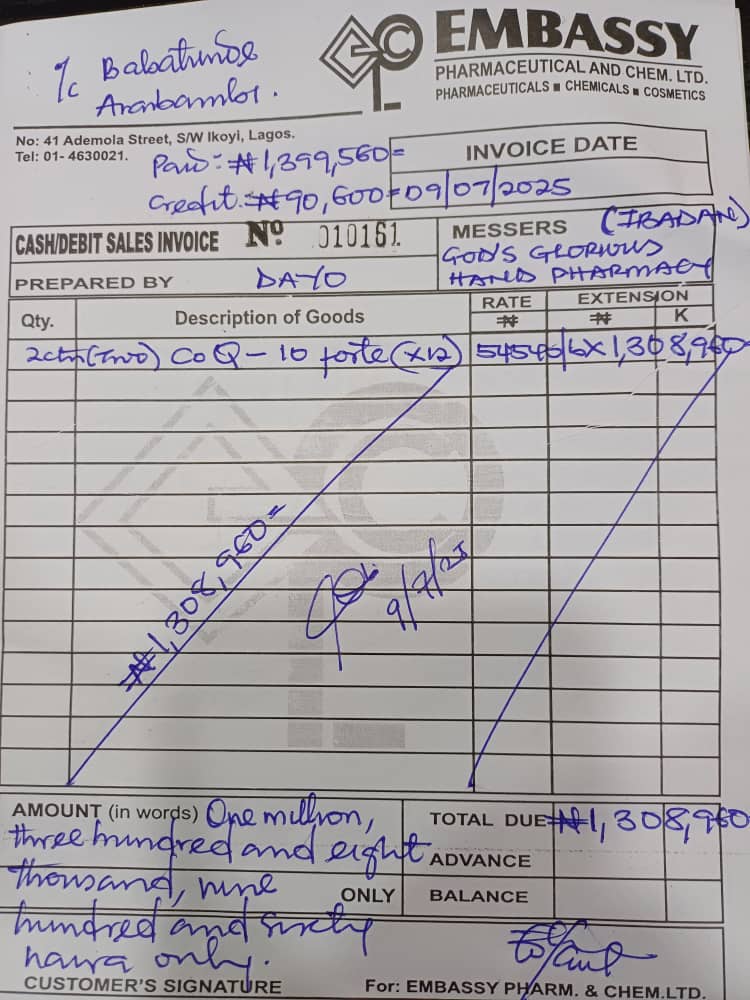 I/c Babatunde
Aranbamlor.
EMBASSY
PHARMACEUTICAL AND CHEM. LTD.
PHARMACEUTICALS ■ CHEMICALS ■ COSMETICS
No: 41 Ademola Street, S/W Ikoyi, Lagos.
Tel: 01- 4630021.
Paid: ₦1,399,560=
Credit: ₦90,600=
INVOICE DATE
09/07/2025
CASH/DEBIT SALES INVOICE Nº 010161.
PREPARED BY DAYO
MESSERS (IBADAN)
GOD'S GLORIOUS
HAND PHARMACY
Qty. Description of Goods RATE ₦ EXTENSION ₦ K
2ctn(Two) CoQ-10 forte (x12) 54540 1,308,960
₦1,308,960=
9/7/25
AMOUNT (in words) One million,
three hundred and eight
thousand, nine
hundred and sixty
naira only.
ONLY
TOTAL DUE ₦1,308,960
ADVANCE
BALANCE
CUSTOMER'S SIGNATURE
For: EMBASSY PHARM. & CHEM.LTD.